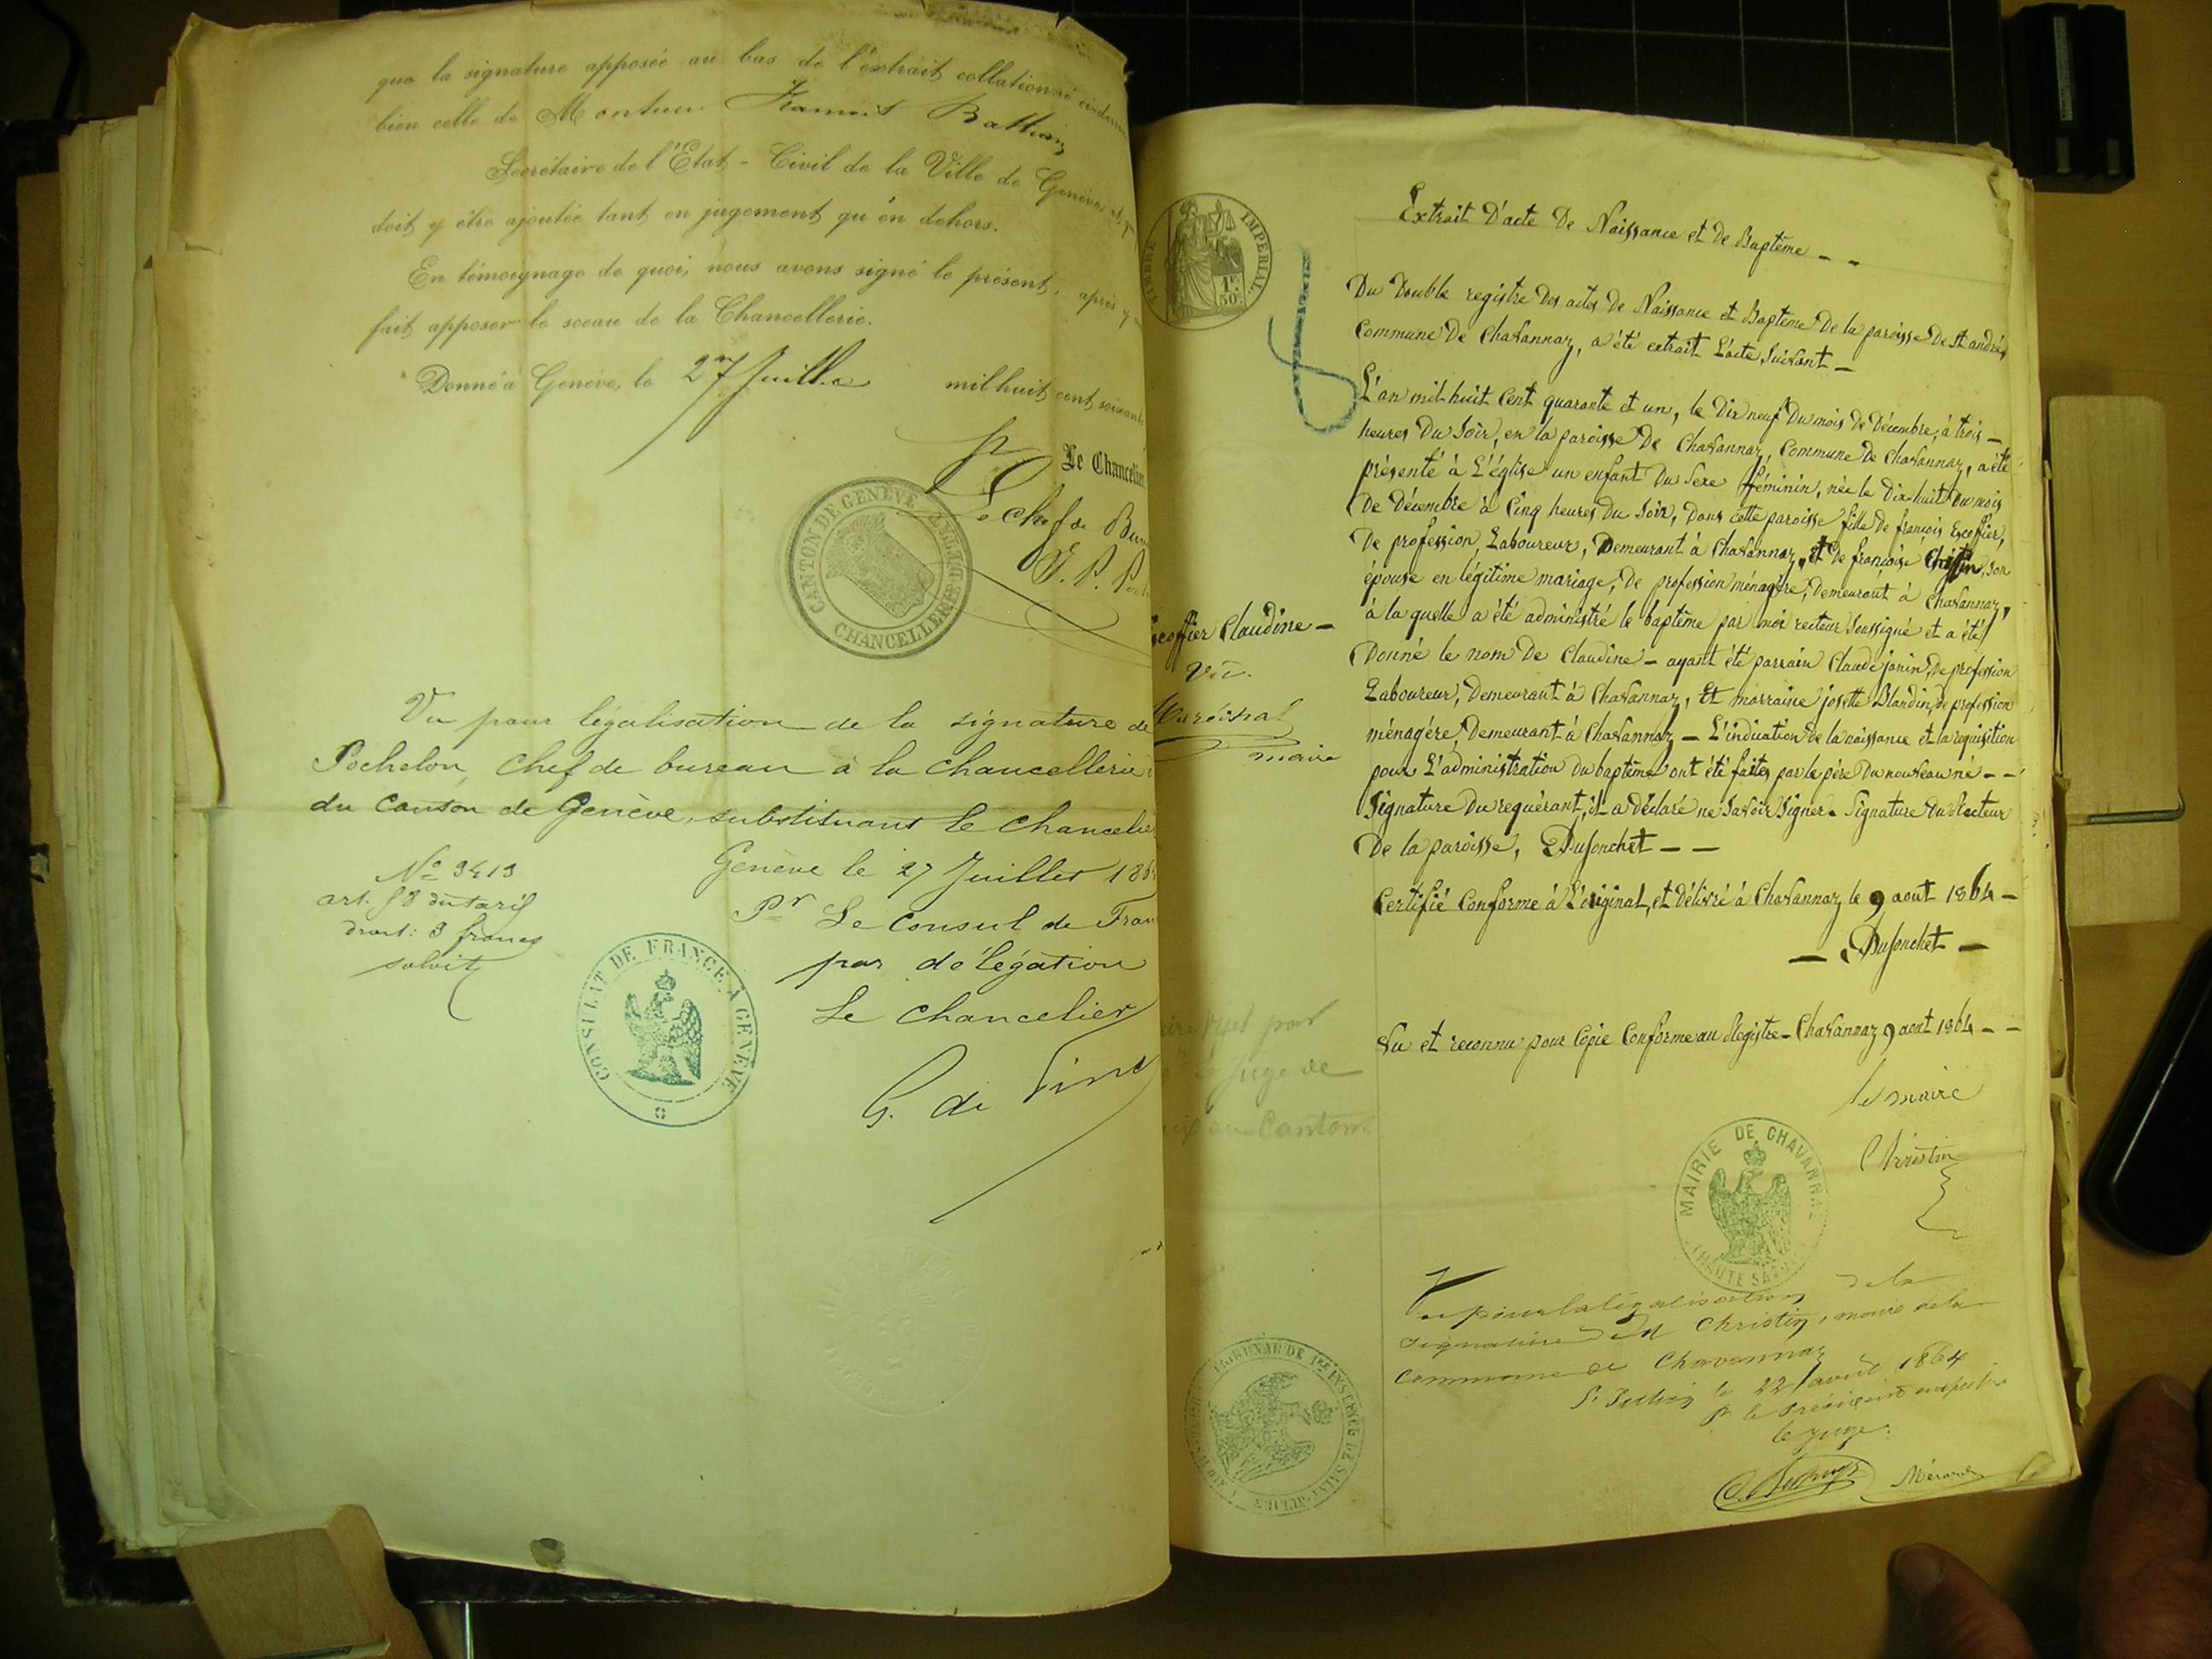 que la signature apposée au bas de l'extrait collationné
bien celle de Monsieur
Secrétaire de l'Etat-Civil de la Ville de Genève, et
doit y être ajoutée tant en jugement qu'en dehors.
En témoignage de quoi, nous avons signé le présent, après y
fait apposer le sceau de la Chancellerie.
Donné à Genève, le 27 Juillet mil huit cent soixante
Le Chancelier
Le chef de
J. P.
CANTON DE GENÈVE
CHANCELLERIE
Vu pour légalisation de la signature de
Pochelon, Chef de bureau à la chancellerie
du Canton de Genève, substituant le Chancelier
Genève le 27 Juillet 186
Pr Le Consul de Fran
par délégation
Le Chancelier
No 3413
art. 58 du tarif
droit: 3 francs
solvit
CONSULAT DE FRANCE A GENEVE
TIMBRE IMPERIAL
1F.
50C.
Extrait D'acte De Naissance et de Baptême
Du Double registre des actes de Naissance et Baptême De la paroisse De St andré,
Commune De Chavannaz, a été extrait L'acte suivant
L'an mil huit Cent quarante et un, le Dix neuf Du mois de Décembre, à trois
heures Du Soir, en la paroisse De Chavannaz, Commune De Chavannaz, a été
présenté à L'église un enfant Du Sexe féminin, née le Dix-huit Du mois
De Décembre à Cinq heures Du Soir, Dans cette paroisse fille De françois Escoffier,
De profession Laboureur, Demeurant à Chavannaz, et De françoise son
épouse en légitime mariage, De profession ménagère, Demeurant à Chavannaz,
à la quelle a été administré le baptême par moi recteur soussigné et a été
Donné le nom De Claudine - ayant été parrain Claude janin, De profession
Laboureur, Demeurant à Chavannaz, Et marraine josette Blandin, de profession
ménagère, Demeurant à Chavannaz - L'indication De la naissance et la requisition
pour L'administration Du baptême ont été faites par le père Du nouveau né - -
Signature Du requérant, il a Déclaré ne Savoir Signer. Signature Du Recteur
De la paroisse, Dufonchet - -
Certifié Conforme à L'original, et délivré à Chavannaz le 9 aout 1864 -
- Dufonchet -
Escoffier Claudine -
Vu.
maire
juge de
Canton
Vu et reconnu pour Copie Conforme au Registre - Chavannaz 9 aout 1864 - -
le maire
Christin
MAIRIE DE CHAVANNAZ
(HAUTE SAVOIE)
Vu pour la légalisation de la
signature de M Christin, maire de la
Commune de Chavannaz
St Julien le 22 août 1864
pr le Président empêché
le juge.
TRIBUNAL DE 1RE INSTANCE DE SAINT-JULIEN